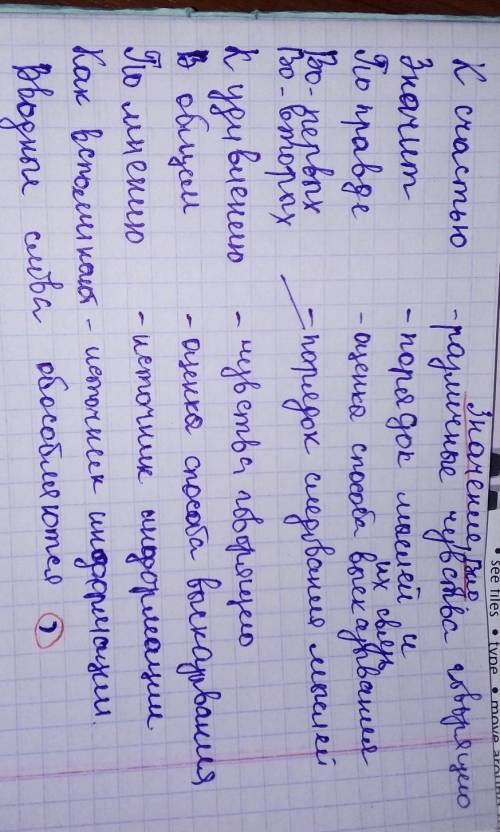 Значение
К счастью - различные чувства говорящего
Значит - порядок мыслей и их связь
По правде - оценка способа высказывания
Во-первых
Во-вторых - порядок следования мыслей
К удивлению - чувства говорящего
В общем - оценка способа высказывания
По мнению - источник информации
Как вспоминают - источник информации.
Вводные слова обособляются ,
• see files • type • move around